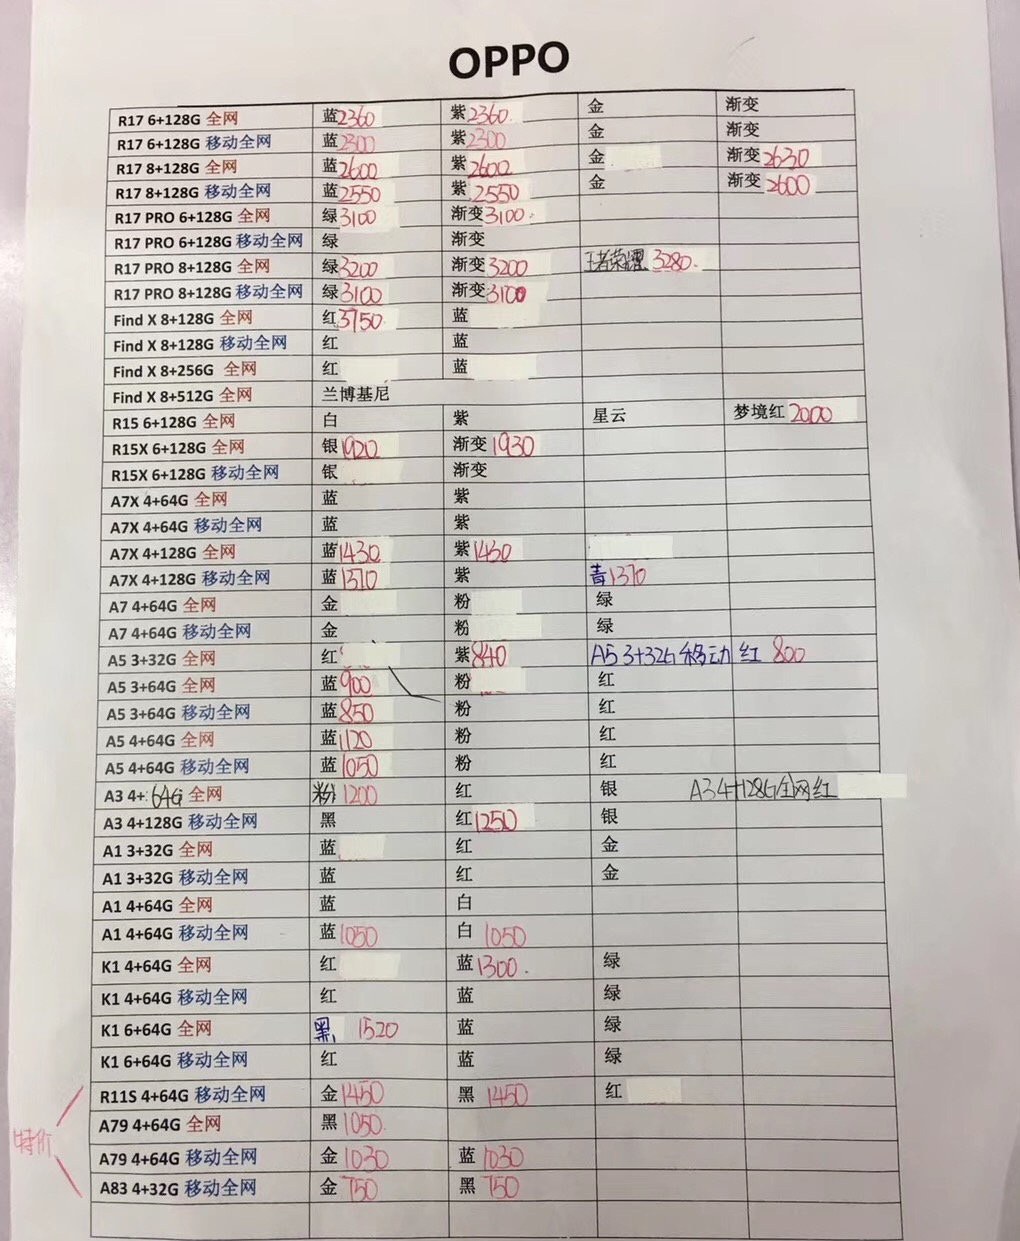 OPPO
R17 6+128G 全网 蓝2360 紫2360 金 渐变
R17 6+128G 移动全网 蓝2300 紫2300 金 渐变
R17 8+128G 全网 蓝2600 紫2600 金 渐变2630
R17 8+128G 移动全网 蓝2550 紫2550 金 渐变2600
R17 PRO 6+128G 全网 绿3100 渐变3100.
R17 PRO 6+128G 移动全网 绿 渐变
R17 PRO 8+128G 全网 绿3200 渐变3200 王者荣耀3280.
R17 PRO 8+128G 移动全网 绿3100 渐变3100
Find X 8+128G 全网 红3750 蓝
Find X 8+128G 移动全网 红 蓝
Find X 8+256G 全网 红 蓝
Find X 8+512G 全网 兰博基尼
R15 6+128G 全网 白 紫 星云 梦境红2000
R15X 6+128G 全网 银1920 渐变1930
R15X 6+128G 移动全网 银 渐变
A7X 4+64G 全网 蓝 紫
A7X 4+64G 移动全网 蓝 紫
A7X 4+128G 全网 蓝1430 紫1430
A7X 4+128G 移动全网 蓝1370 紫 青1370
A7 4+64G 全网 金 粉 绿
A7 4+64G 移动全网 金 粉 绿
A5 3+32G 全网 红 紫840 A5 3+32G 移动 红 800
A5 3+64G 全网 蓝900 粉 红
A5 3+64G 移动全网 蓝850 粉 红
A5 4+64G 全网 蓝1120 粉 红
A5 4+64G 移动全网 蓝1050 粉 红
A3 4+64G 全网 粉1200 红 银 A3 4+128G全网红
A3 4+128G 移动全网 黑 红1250 银
A1 3+32G 全网 蓝 红 金
A1 3+32G 移动全网 蓝 红 金
A1 4+64G 全网 蓝 白
A1 4+64G 移动全网 蓝1050 白 1050
K1 4+64G 全网 红 蓝1300. 绿
K1 4+64G 移动全网 红 蓝 绿
K1 6+64G 全网 黑 1520 蓝 绿
K1 6+64G 移动全网 红 蓝 绿
R11S 4+64G 移动全网 金1450 黑 1450 红
A79 4+64G 全网 黑1050.
特价
A79 4+64G 移动全网 金1030 蓝1030
A83 4+32G 移动全网 金750 黑750